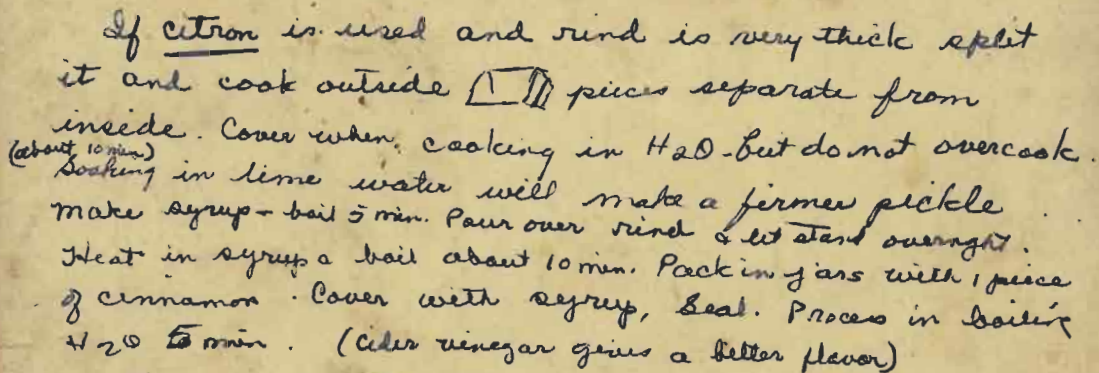 If citron is used and rind is very thick split
it and cook outside pieces separate from
inside. Cover when cooking in H2O - but do not overcook.
(about 10 min)
Soaking in lime water will make a firmer pickle.
Make syrup - boil 5 min. Pour over rind & let stand overnght.
Heat in syrup & boil about 10 min. Pack in jars with 1 piece
of cinnamon. Cover with syrup, Seal. Process in boiling
H2O 5 min. (Cider vinegar gives a better flavor)